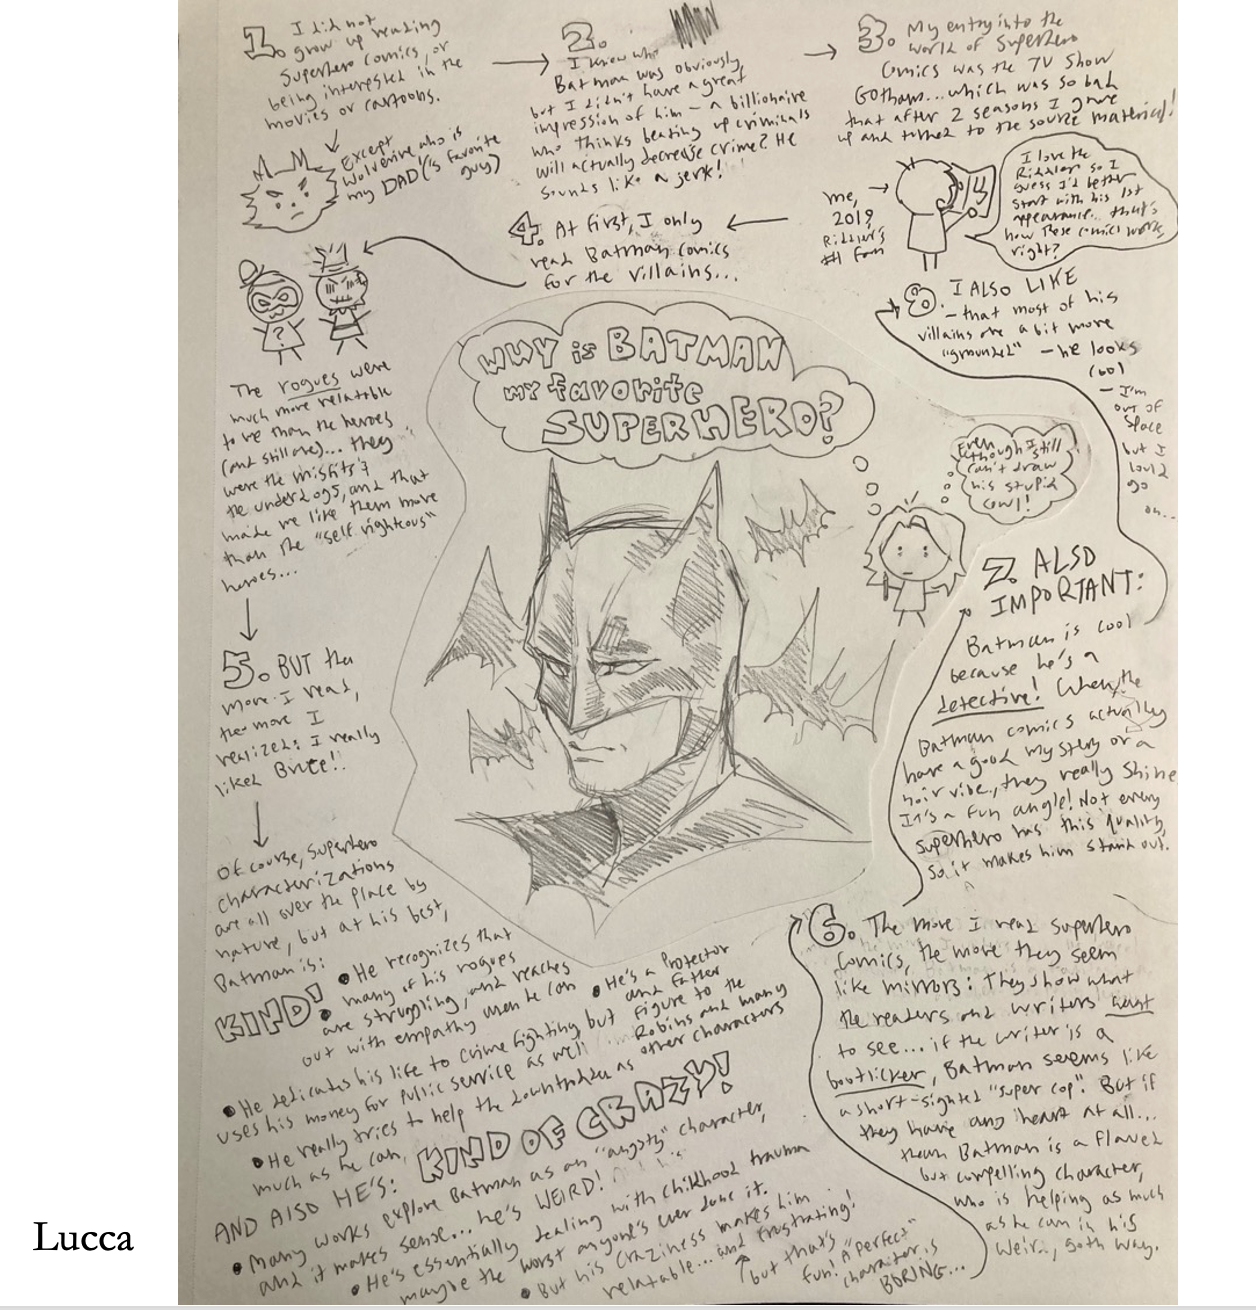 1. I did not
grow up reading
Superhero comics, or
being interested in the
movies or cartoons.
Except
Wolverine who is
my DAD('s favorite
guy)
2.
I knew who
Batman was obviously,
but I didn't have a great
impression of him – a billionaire
who thinks beating up criminals
will actually decrease crime? He
sounds like a jerk!
3. My entry into the
world of Superhero
Comics was the TV Show
Gotham... which was so bad
that after 2 seasons I gave
up and turned to the source material!
me,
2019
Riddler's
#1 fan
I love the
Riddler so I
guess I'd better
start with his 1st
appearance... that's
how these comics work,
right?
4. At first, I only
read Batman comics
for the villains...
?
The rogues were
much more relatable
to me than the heroes
(and still are)... they
were the misfits &
the underdogs, and that
made me like them more
than the "self righteous"
heroes...
5. BUT the
more I read,
the more I
realized: I really
liked Bruce!!
Of course, superhero
characterizations
are all over the place by
nature, but at his best,
Batman is:
KIND!
• He recognizes that
many of his rogues
are struggling, and reaches
out with empathy when he can
• He's a Protector
and Father
Figure to the
Robins and many
other characters
• He dedicates his life to crime fighting, but
uses his money for public service as well
• He really tries to help the downtrodden as
much as he can.
AND ALSO HE'S: KIND OF CRAZY!
• Many works explore Batman as an "angsty" character,
and it makes sense... he's WEIRD!
• He's essentially dealing with childhood trauma
maybe the worst anyone's ever done it.
• But his craziness makes him
relatable... and frustrating!
but that's
fun! A "perfect"
character is
BORING...
6. The more I read superhero
comics, the more they seem
like mirrors: They show what
the readers and writers want
to see... if the writer is a
bootlicker, Batman seems like
a short-sighted "super cop". But if
they have any heart at all...
then Batman is a flawed
but compelling character,
who is helping as much
as he can in his
weird, goth way.
7. ALSO
IMPORTANT:
Batman is cool
because he's a
detective! When the
Batman comics actually
have a good mystery or a
noir vibe, they really shine
It's a fun angle! Not every
superhero has this quality,
so it makes him stand out.
8. I ALSO LIKE
– that most of his
villains are a bit more
"grounded" – he looks
cool
– I'm
out of
space
but I
could
go
on...
WHY is BATMAN
my favorite
SUPERHERO?
Even
although I still
can't draw
his stupid
cowl!
Lucca